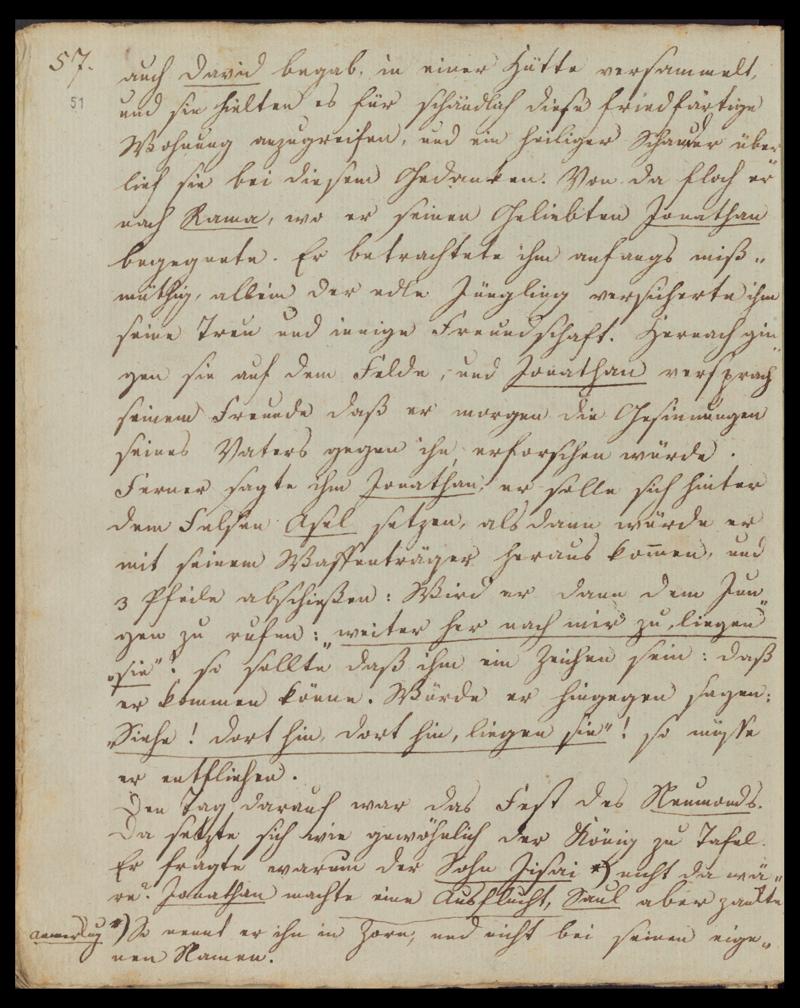 57.
51
auch David begab, in einer Hütte versammelt,
und sie hielten es für schändlich diese friedfärtige
Wohnung anzugreifen, und ein heiliger Schauder über
lief sie bei diesem Gedanken. Von da floh er
nach Rama, wo er seinen Geliebten Jonathan
begegnete. Er betrachtete ihm anfangs miß„
müthig, allein der edle Jüngling versicherte ihm
seine Treu und innige Freundschaft. Hernach gin„
gen sie auf dem Felde, und Jonathan versprach
seinem Freunde daß er morgen die Gesinnungen
seines Vaters gegen ihn erforschen würde.
Ferner sagte ihm Jonathan, er solle sich hinter
dem Felsen Asel setzen, alsdann würde er
mit seinem Waffenträger heraus kom̄en, und
3 Pfeile abschießen: Wird er dann dem Jun„
gen zu rufen: weiter her nach mir zu, liegen
„sie"! so sollte daß ihm ein Zeichen sein: daß
er kommen könne. Würde er hingegen sagen:
„Siehe! dort hin, dort hin, liegen sie"! so müsse
er entfliehen.
Den Tag darauf war das Fest des Neumonds.
Da setzte sich wie gewöhnlich der König zu Tafel.
Er fragte warum der Sohn Jisai *) nicht da wä„
re? Jonathan machte eine Ausflucht, Saul aber zankte
*) So nennt er ihn in Zorn, und nicht bei seinen eige„
nen Namen.